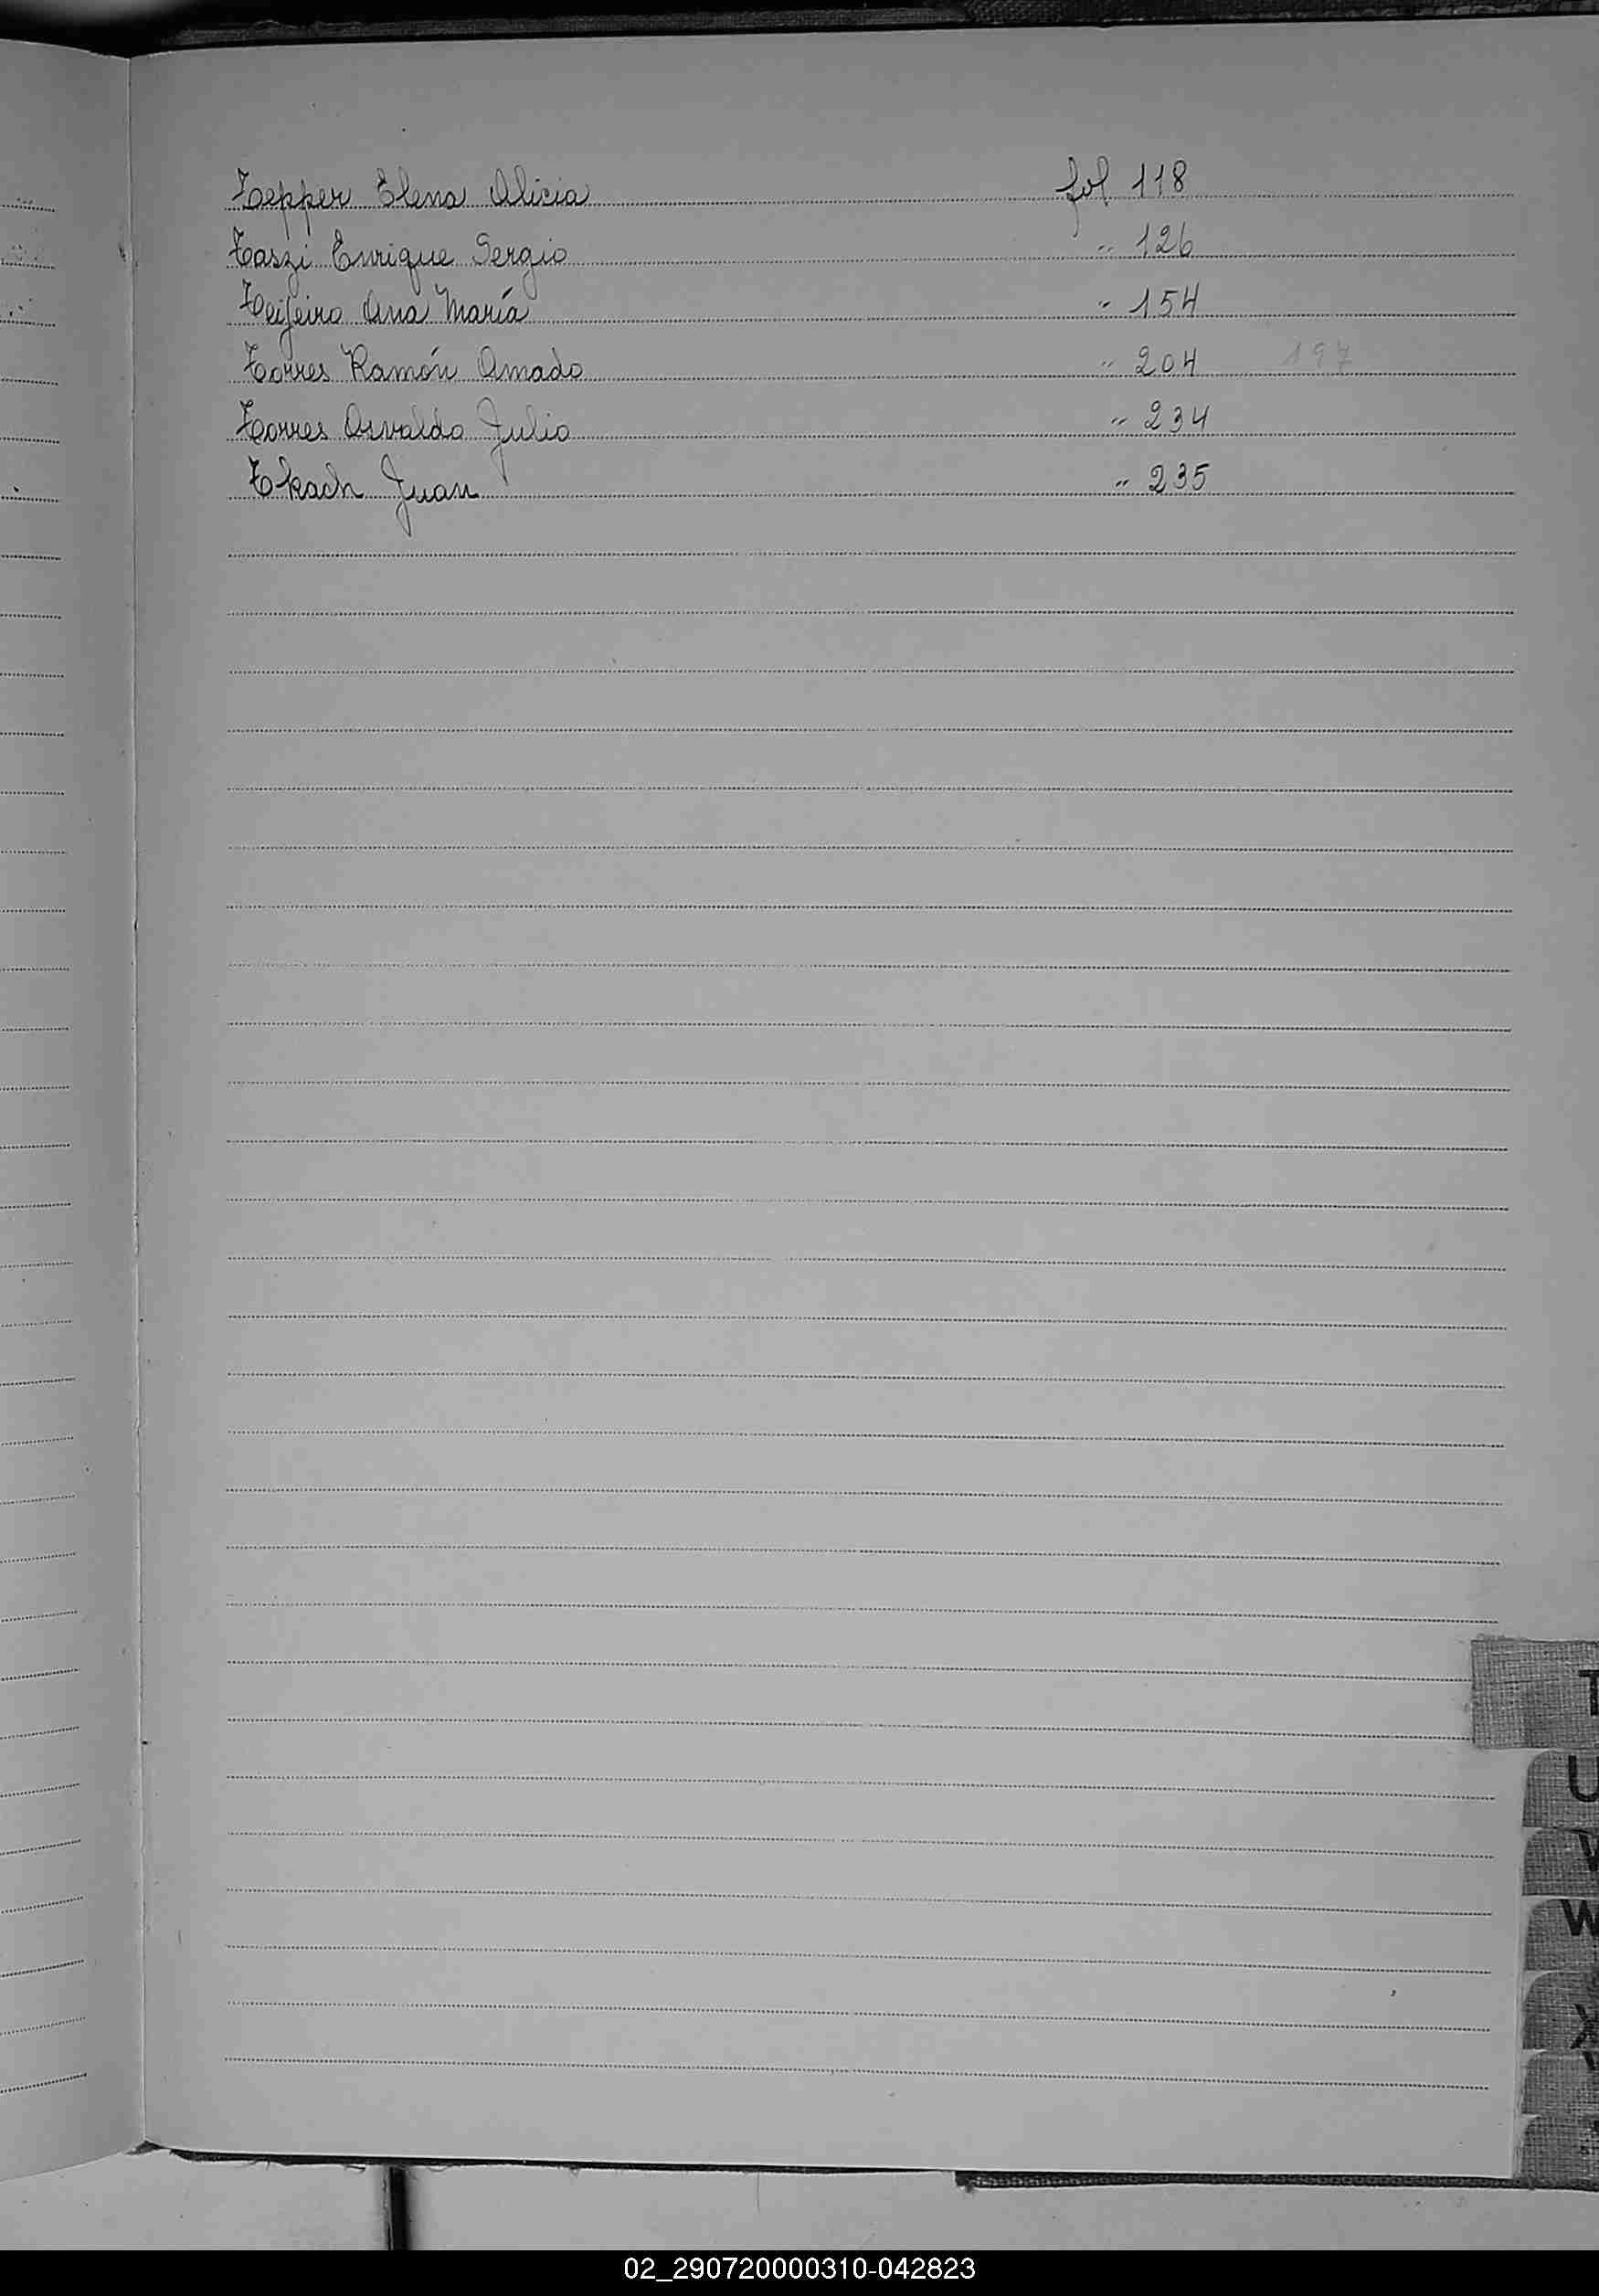 Tepper Elena Alicia fol 118
Taszi Enrique Sergio " 126
Teijeiro Ana María " 154
Torres Ramón Amado " 204 197
Torres Osvaldo Julio " 234
Tkach Juan " 235
T
U
V
W
X
02_290720000310-042823